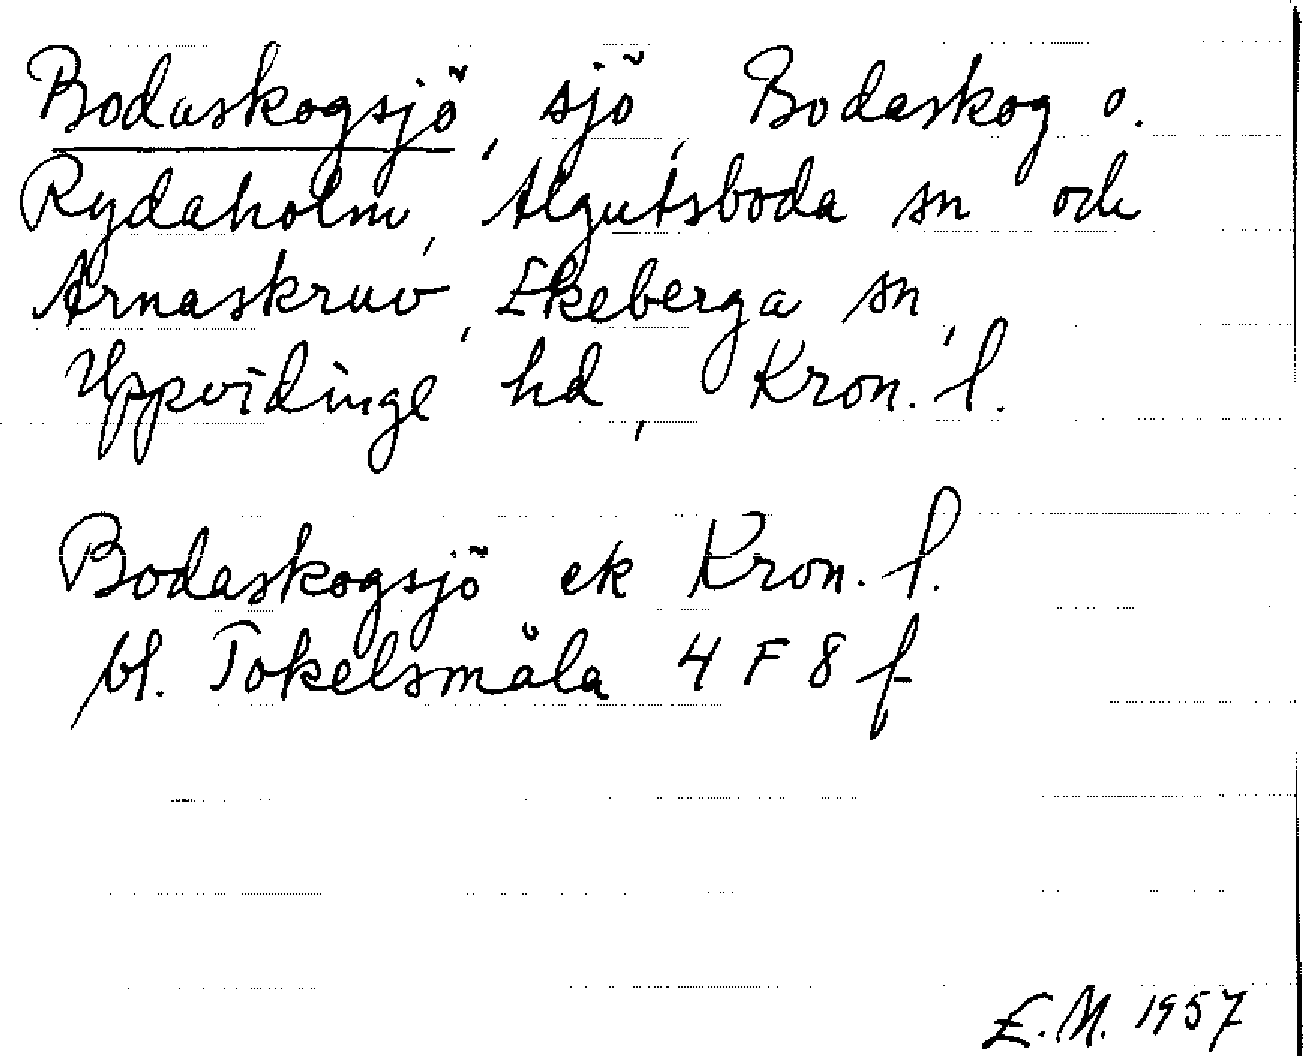 Bodaskogsjö, sjö, Bodaskog o.
Rydaholm, Algutsboda sn och
Arnaskruv, Ekeberga sn,
Uppvidinge hd, Kron. l.
Bodaskogsjö ek Kron. l.
bl. Tokelsmåla 4 F 8 f
E.M. 1957